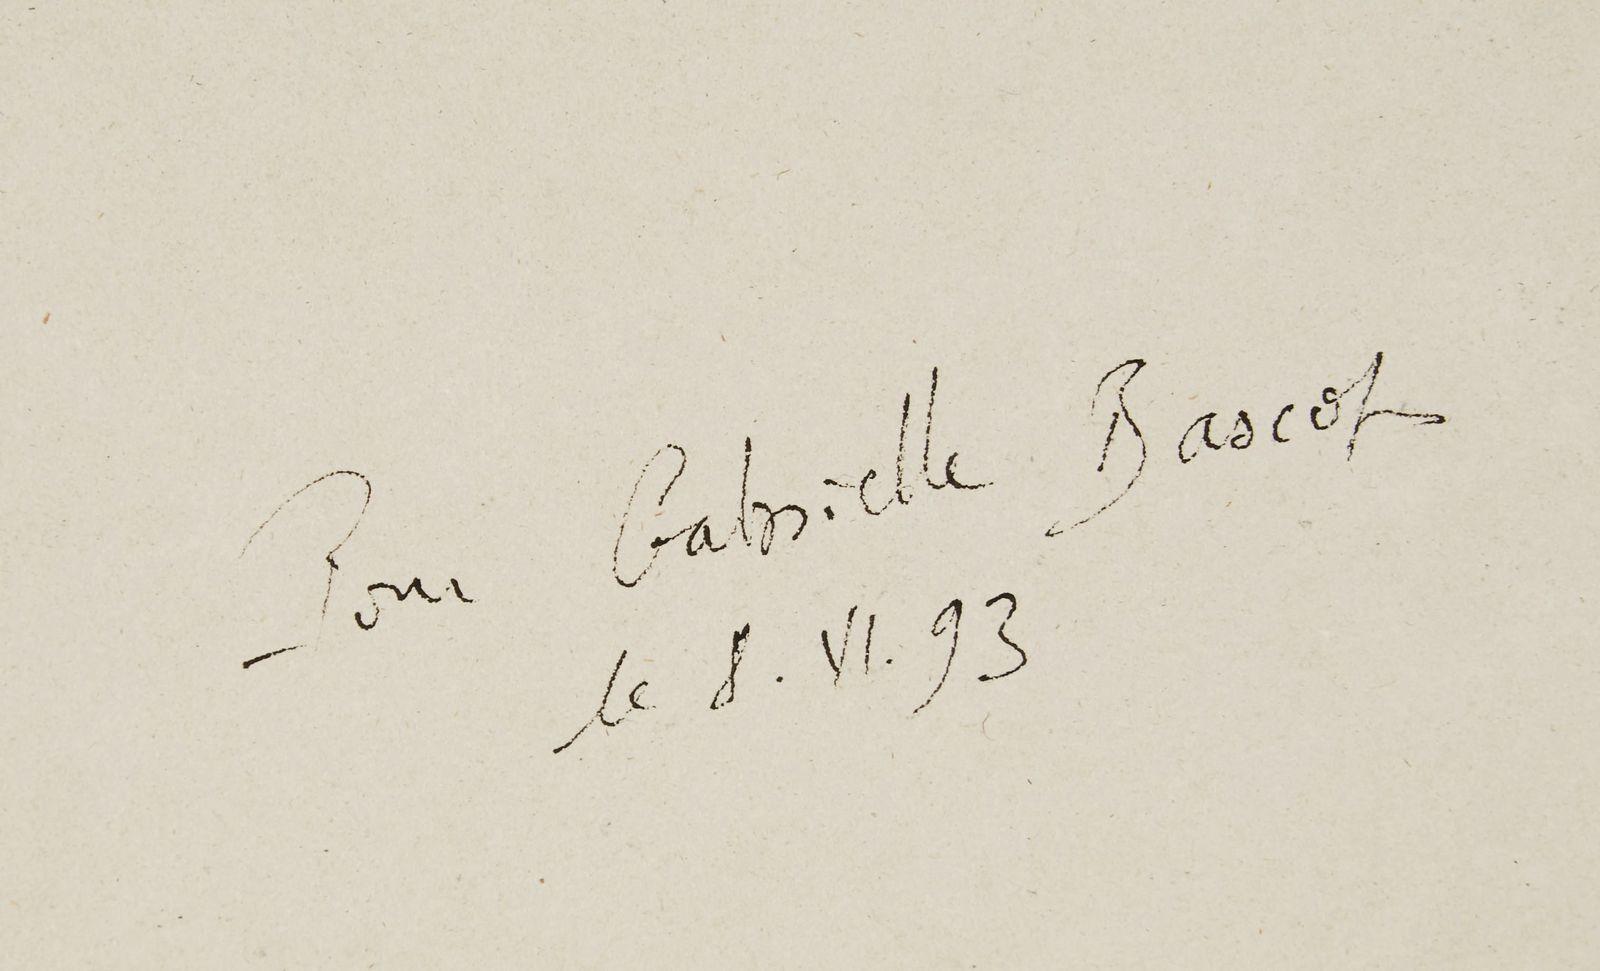 Pour Gabrielle Bascot
le 8. VI. 93